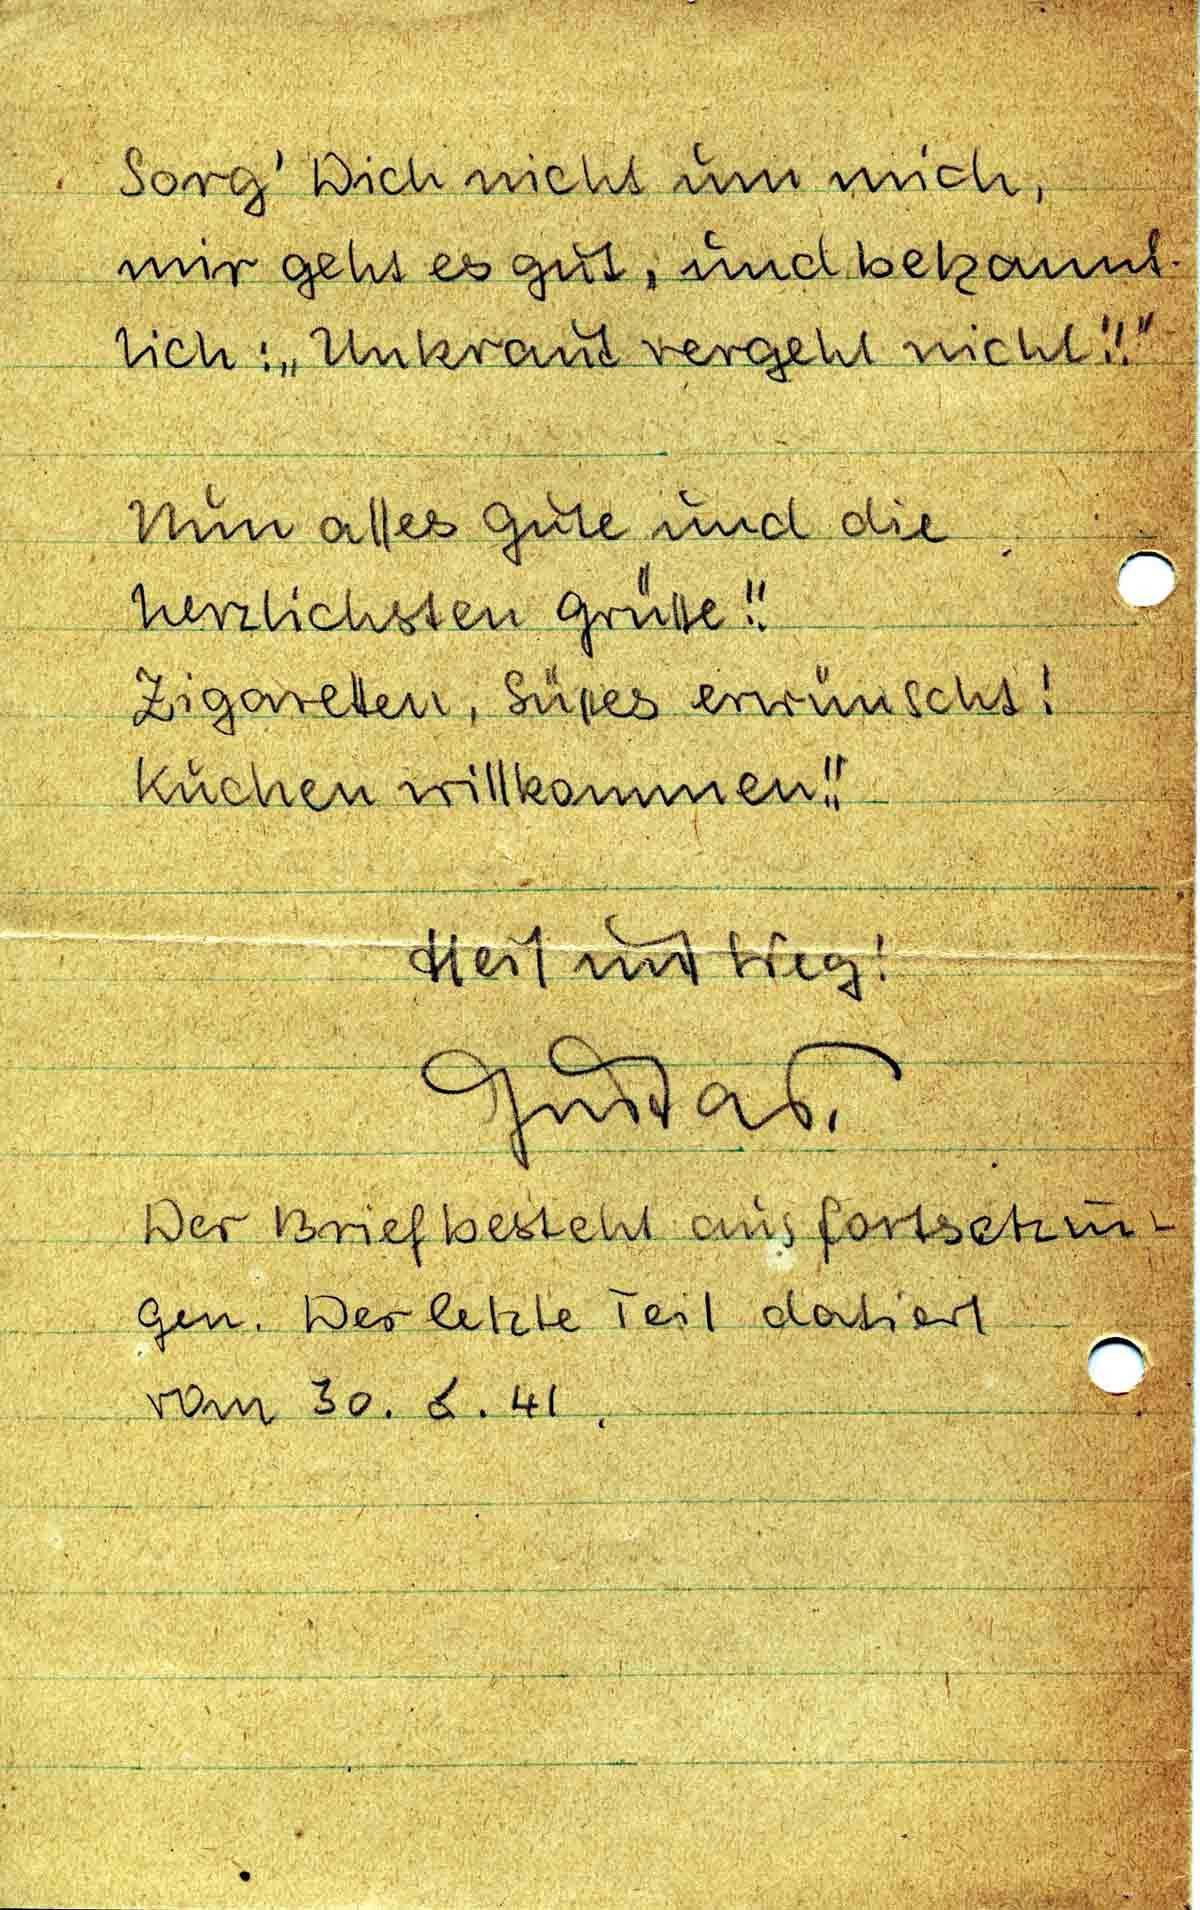 Sorg' Dich nicht um mich,
mir geht es gut, und bekannt-
lich: „Unkraut vergeht nicht!!"
Nun alles Gute und die
herzlichsten Grüsse!!
Zigaretten, Süsses erwünscht!
Kuchen willkommen!!
Heil und Sieg!
Gustav.
Der Brief besteht aus Fortsetzun-
gen. Der letzte Teil datiert
vom 30. 8. 41.